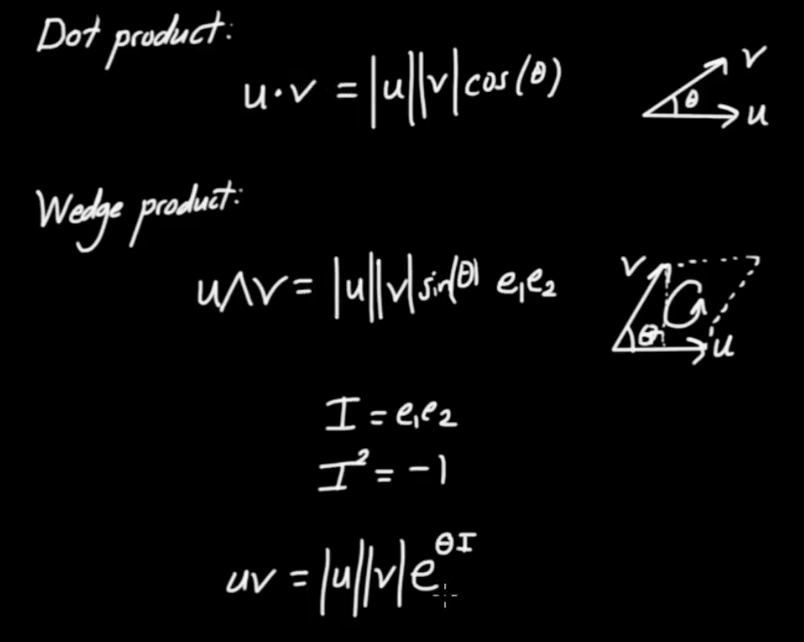 Dot product:
u·v = |u||v|cos(θ)
v
θ
u
Wedge product:
u∧v = |u||v|sin(θ) e₁e₂
v
θ
u
I = e₁e₂
I² = -1
uv = |u||v|e^θI